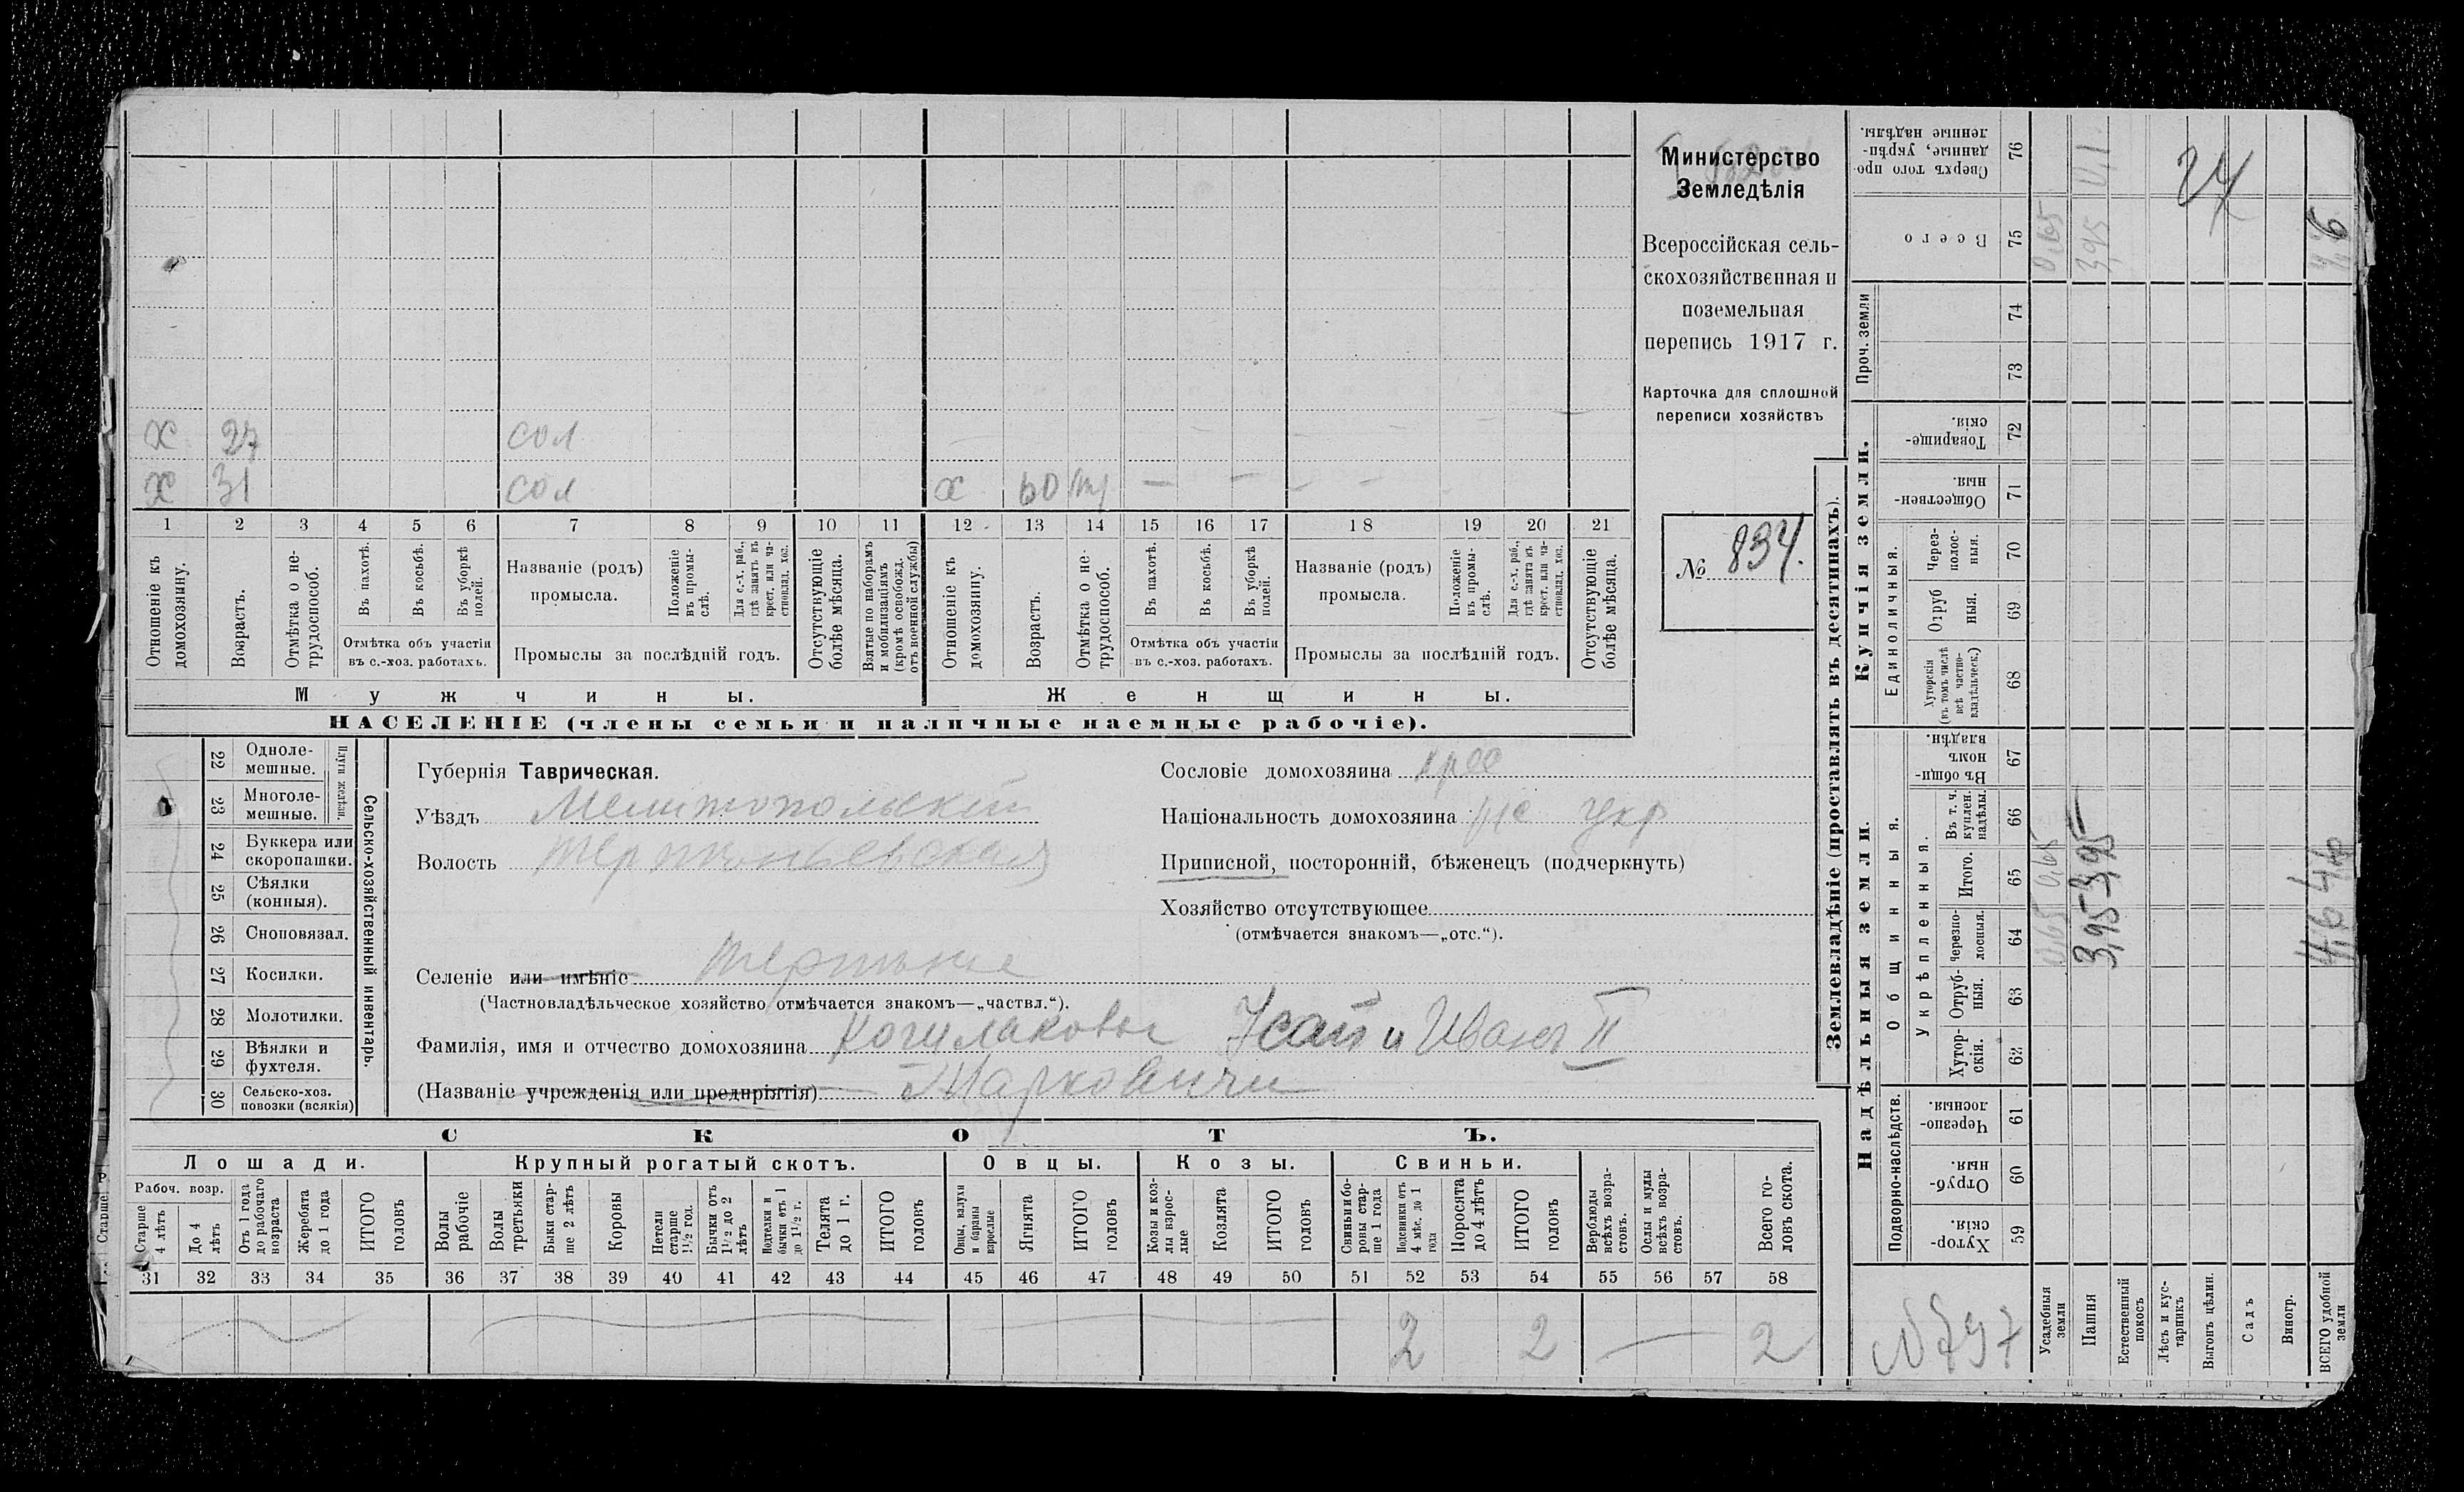 Х 27 сол
Х 31 сол х 60 — — — —
1 2 3 4 5 6 7 8 9 10 11 12 13 14 15 16 17 18 19 20 21
Отношеніе къ домохозяину.
Возрастъ.
Отмѣтка о не-трудоспособ.
Въ пахотѣ.
Въ косьбѣ.
Въ уборкѣ полей.
Отмѣтка объ участіи въ с.-хоз. работахъ.
Названіе (родъ) промысла.
Положеніе въ промы-слѣ.
Для с.-х. раб., гдѣ занятъ въ крест. или ча-стновлад. хоз.
Промыслы за послѣдній годъ.
Отсутствующіе болѣе мѣсяца.
Взятые по наборамъ и мобилизаціямъ (кромѣ освобожд. отъ военной службы)
Отношеніе къ домохозяину.
Возрастъ.
Отмѣтка о не-трудоспособ.
Въ пахотѣ.
Въ косьбѣ.
Въ уборкѣ полей.
Отмѣтка объ участіи въ с.-хоз. работахъ.
Названіе (родъ) промысла.
Положеніе въ промы-слѣ.
Для с.-х. раб., гдѣ занята въ крест. или ча-стновлад. хоз.
Промыслы за послѣдній годъ.
Отсутствующіе болѣе мѣсяца.
Мужчины.
Женщины.
НАСЕЛЕНІЕ (члены семьи и наличные наемные рабочіе).
Министерство
Земледѣлія
Всероссійская сель-
скохозяйственная и
поземельная
перепись 1917 г.
Карточка для сплошной
переписи хозяйствъ
№ 834.
22 Одноле-мешные.
23 Многоле-мешные.
Плуги желѣзн.
24 Буккера или скоропашки.
25 Сѣялки (конныя).
26 Сноповязал.
27 Косилки.
28 Молотилки.
29 Вѣялки и фухтеля.
30 Сельско-хоз. повозки (всякія)
Сельско-хозяйственный инвентарь.
Губернія Таврическая.
Уѣздъ Мелитопольскій
Волость
Селеніе или имѣніе Терпѣніе
(Частновладѣльческое хозяйство отмѣчается знакомъ—„частвл.“).
Фамилія, имя и отчество домохозяина Исай и Иванъ II
(Названіе учрежденія или предпріятія) Марковичи
Сословіе домохозяина крес
Національность домохозяина укр
Приписной, посторонній, бѣженецъ (подчеркнуть)
Хозяйство отсутствующее
(отмѣчается знакомъ—„отс.“).
СКОТЪ.
Лошади.
Крупный рогатый скотъ.
Овцы.
Козы.
Свиньи.
Рабоч. возр.
Старше 4 лѣтъ
До 4 лѣтъ
Отъ 1 года до рабочаго возраста
Жеребята до 1 года
ИТОГО головъ
Волы рабочіе
Волы третьяки
Быки стар-ше 2 лѣтъ
Коровы
Нетели старше 1½ год.
Бычки отъ 1½ до 2 лѣтъ
Подтелки и бычки отъ 1 до 1½ г.
Телята до 1 г.
ИТОГО головъ
Овцы, валухи и бараны взрослые
Ягнята
ИТОГО головъ
Козы и коз-лы взрос-лые
Козлята
ИТОГО головъ
Свиньи и бо-ровы стар-ше 1 года
Подсвинки отъ 4 мѣс. до 1 года
Поросята до 4 лѣтъ
ИТОГО головъ
Верблюды всѣхъ возра-стовъ.
Ослы и мулы всѣхъ возра-стовъ.
Всего го-ловъ скота.
31 32 33 34 35 36 37 38 39 40 41 42 43 44 45 46 47 48 49 50 51 52 53 54 55 56 57 58
2 2 — 2
Землевладѣніе (проставлять въ десятинахъ).
Купчія земли.
Надѣльныя земли.
Сверхъ того про-данные, укрѣп-ленные надѣлы. 76
Всего 75
Проч. земли
74
73
Товарище-скія. 72
Обществен-ныя. 71
Единоличныя.
Через-полос-ныя. 70
Отруб ныя. 69
Хуторскія (въ томъ числѣ всѣ частно-владѣльческ.) 68
Общинныя.
Въ общи-номъ владѣн. 67
Укрѣпленныя.
Въ т. ч. куплен. надѣлы. 66
Итого. 65
Черезпо-лосныя. 64
Отруб-ныя. 63
Хутор-скія. 62
Подворно-наслѣдств.
Черезпо-лосныя. 61
Отруб-ныя. 60
Хутор-скія. 59
Усадебныя земли 0,65 0,65 0,65
Пашня 3,95 3,95 3,95
Естественный покосъ
Лѣсъ и кус-тарникъ
Выгонъ цѣлин.
Садъ
Виногр.
ВСЕГО удобной земли 4,6 4,6 4,6
24
№797